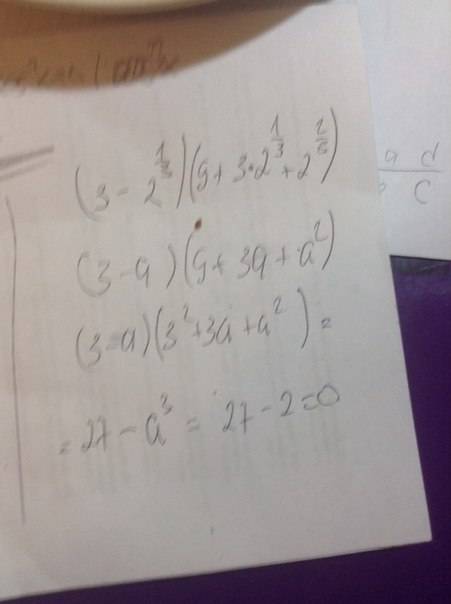 (3 - 2^{1/3})(9 + 3·2^{1/3} + 2^{2/3})
(3 - a)(9 + 3a + a²)
(3 - a)(3² + 3a + a²) =
= 27 - a³ = 27 - 2 = 0
a d
c